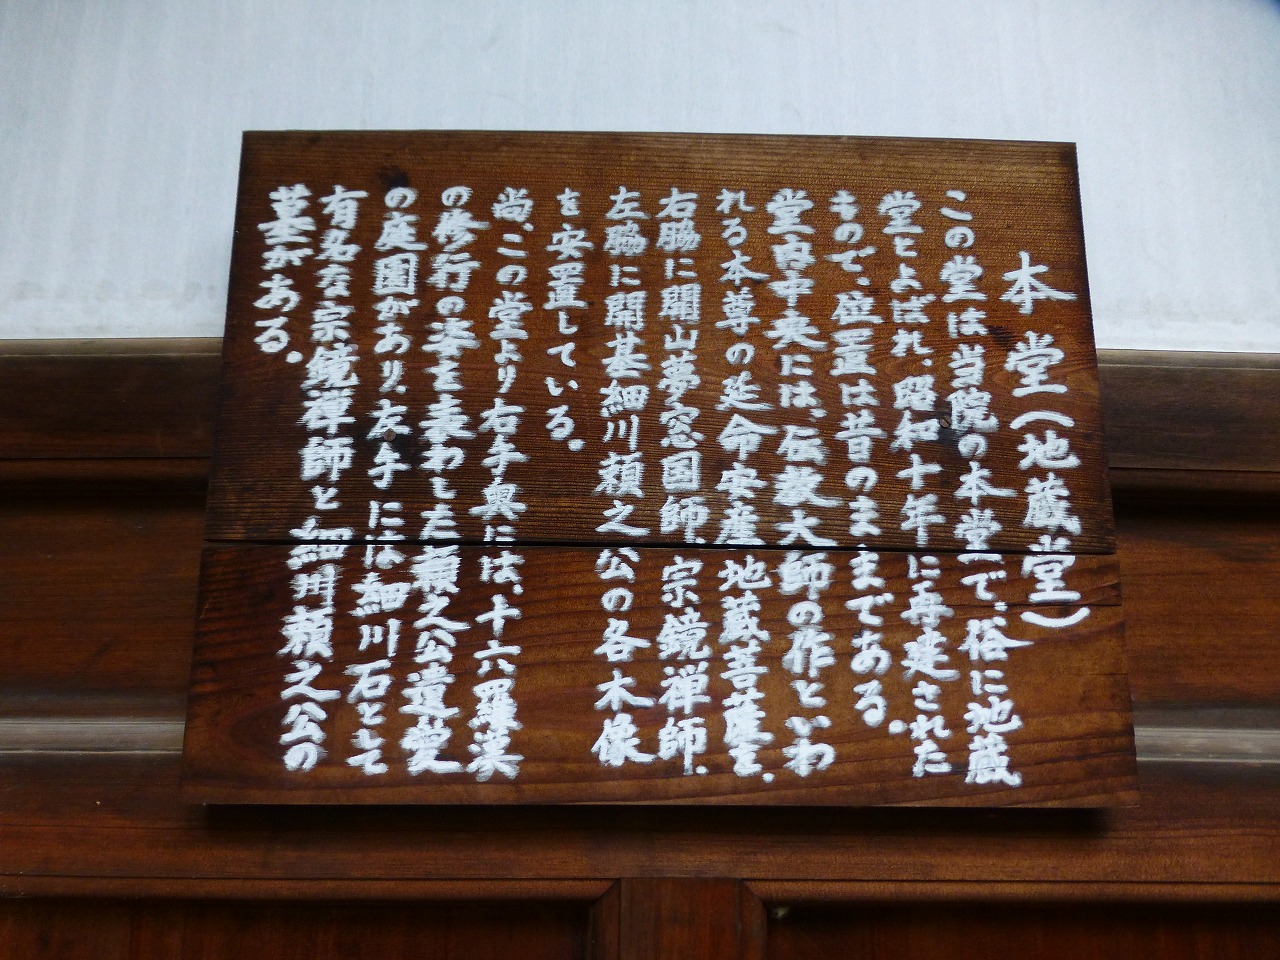 本堂(地蔵堂)
この堂は当院の本堂で、俗に地蔵
堂とよばれ、昭和十年に再建された
もので、位置は昔のままである。
堂内中央には、伝教大師の作といわ
れる本尊の延命安産地蔵菩薩を、
右脇に開山夢窓国師、宗鏡禅師、
左脇に開基細川頼之公の各木像
を安置している。
尚、この堂より右手奥には、十六羅漢
の修行の姿を表わした頼之公遺愛
の庭園があり、左手には細川石として
有名な宗鏡禅師と細川頼之公の
墓がある。